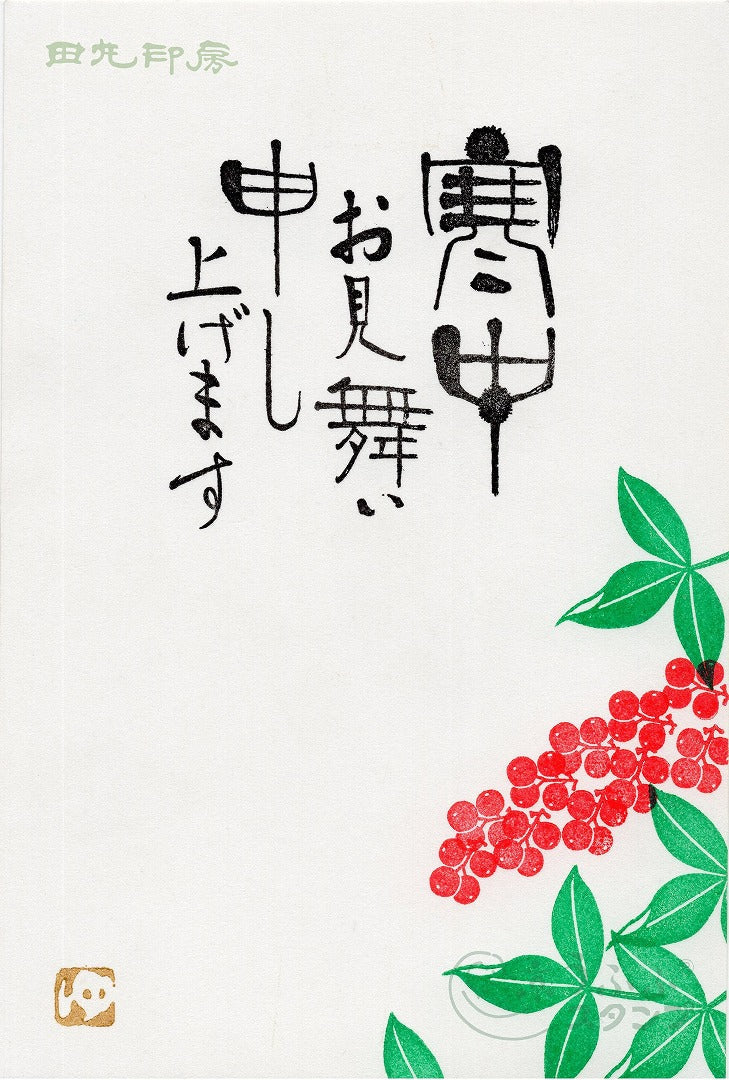 田丸印房
寒中
お見舞い
申し
上げます
ゆ